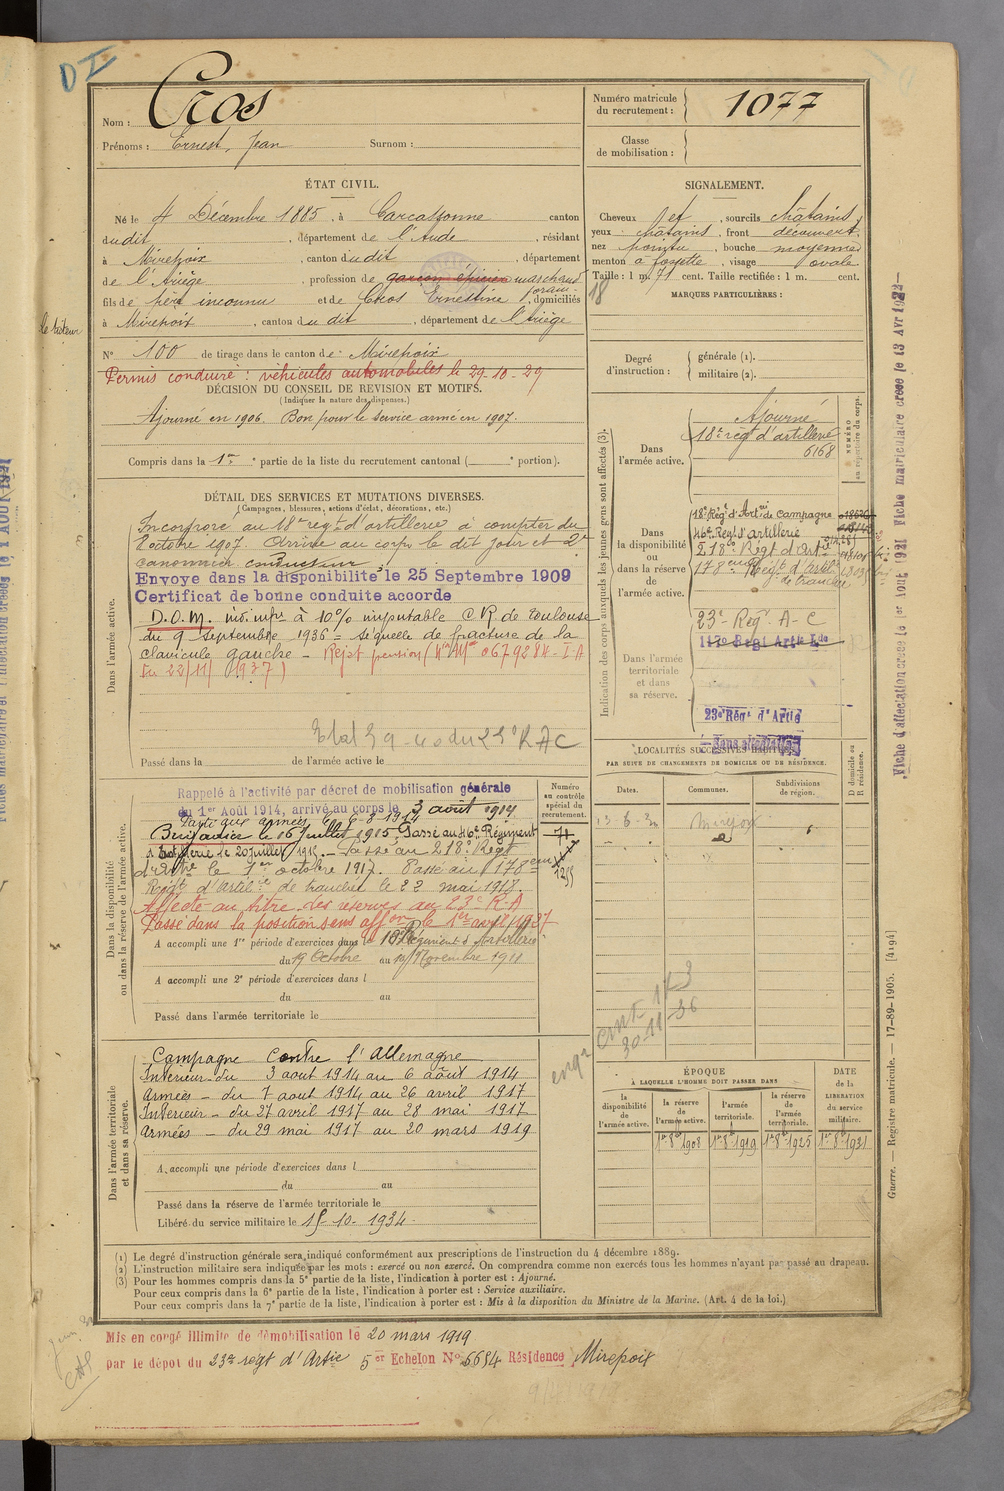 D I
Nom : Cros
Prénoms : Ernest, Jean Surnom :
Numéro matricule
du recrutement : 1077
Classe
de mobilisation :
ÉTAT CIVIL.
Né le 4 Décembre 1885, à Carcassonne canton
dudit, département de l'Aude, résidant
à Mirepoix, canton dudit, département
de l'Ariège, profession de garçon épicier marchand
forain
fils de père inconnu et de Cros Ernestine, domiciliés
à Mirepoix, canton du dit, département de l'Ariège
N° 100 de tirage dans le canton de Mirepoix
Permis conduire : véhicules automobiles le 29-10-29
DÉCISION DU CONSEIL DE REVISION ET MOTIFS.
(Indiquer la nature des dispenses.)
Ajourné en 1906. Bon pour le service armé en 1907.
Compris dans la 1re partie de la liste du recrutement cantonal ( e portion).
SIGNALEMENT.
Cheveux , sourcils châtains
yeux châtains, front découvert
nez pointu, bouche moyenne
menton à fossette, visage ovale
Taille : 1 m. 71 cent. Taille rectifiée : 1 m. cent.
18
MARQUES PARTICULIÈRES :
Degré
d'instruction :
générale (1).
militaire (2).
Indication des corps auxquels les jeunes gens sont affectés (3).
NUMÉRO
au répertoire du corps.
Dans
l'armée active.
Ajourné
18e régt d'artillerie
6168
Dans
la disponibilité
ou
dans la réserve
de
l'armée active.
18e Régt d'Artrie de Campagne
46e Régt d'artillerie
218e Régt d'Artie
178eme Régt d'Artie
de tranchée
23e Reg. A-C
Dans l'armée
territoriale
et dans
sa réserve.
113e Regt Artie Lde
23e Régt d'Artie
Sans affectation
DÉTAIL DES SERVICES ET MUTATIONS DIVERSES.
(Campagnes, blessures, actions d'éclat, décorations, etc.)
Dans l'armée active.
Incorporé au 18e régt d'artillerie à compter du
8 octobre 1907. Arrivé au corps le dit jour et 2e
canonnier conducteur.
Envoye dans la disponibilité le 25 Septembre 1909
Certificat de bonne conduite accorde
D.O.M. inv. infre à 10% imputable C R de Toulouse
du 9 Septembre 1936 = séquelle de fracture de la
clavicule gauche - Rejet pension (Nion Mlle 067928H-I-A
du 22/11/1937)
Etat S 9 - 40 du 23e RAC
Passé dans la de l'armée active le
Dans la disponibilité
ou dans la réserve de l'armée active.
Numéro
au contrôle
spécial du
recrutement.
Rappelé à l'activité par décret de mobilisation générale
du 1er Août 1914, arrivé au corps le 3 août 1914
Parti aux armées le 6-8-1914
Brigadier le 16 Juillet 1915. Passé au 46e Régiment
d'Artillerie le 20 juillet 1915. - Passé au 218e Régt
d'Artrie le 1er octobre 1917. Passé au 178eme
Régt d'Artil.ie de tranchée le 22 mai 1918.
Affecté au titre des réserves au 23e R.A
Passé dans la position sans affon le 1er avril 1927
A accompli une 1re période d'exercices dans le 18e Régiment d'Artillerie
du 19 Octobre au Novembre 1911
A accompli une 2e période d'exercices dans l
du au
Passé dans l'armée territoriale le
71
1255
LOCALITÉS SUCCESSIVES HABITÉES
PAR SUITE DE CHANGEMENTS DE DOMICILE OU DE RÉSIDENCE.
Dates. Communes. Subdivisions
de région. D domicile ou
R résidence.
Mirepoix
30-11-36
Dans l'armée territoriale
et dans sa réserve.
Campagne contre l'Allemagne
Intérieur - du 3 aout 1914 au 6 août 1914
Armées - du 7 aout 1914 au 26 avril 1917
Intérieur - du 27 avril 1917 au 28 mai 1917
Armées - du 29 mai 1917 au 20 mars 1919
A accompli une période d'exercices dans l
du au
Passé dans la réserve de l'armée territoriale le
Libéré du service militaire le 15-10-1934.
ÉPOQUE
À LAQUELLE L'HOMME DOIT PASSER DANS
DATE
de la
LIBERATION
du service
militaire.
la
disponibilité
de
l'armée active.
la réserve
de
l'armée active.
l'armée
territoriale.
la réserve
de
l'armée
territoriale.
1er 8bre 1908 1er 8b 1919 1er 8b 1925 1er 8b 1931
(1) Le degré d'instruction générale sera indiqué conformément aux prescriptions de l'instruction du 4 décembre 1889.
(2) L'instruction militaire sera indiquée par les mots : exercé ou non exercé. On comprendra comme non exercés tous les hommes n'ayant pas passé au drapeau.
(3) Pour les hommes compris dans la 5e partie de la liste, l'indication à porter est : Ajourné.
Pour ceux compris dans la 6e partie de la liste, l'indication à porter est : Service auxiliaire.
Pour ceux compris dans la 7e partie de la liste, l'indication à porter est : Mis à la disposition du Ministre de la Marine. (Art. 4 de la loi.)
Mis en congé illimité de démobilisation le 20 mars 1919
par le dépot du 23e régt d'Artie 5er Echelon No 6654 Résidence Mirepoix
Fiche d'affectation creee le 1er Aout 1921 Fiche matriculaire creee le 13 Avr 1922
Guerre. — Registre matricule. — 17-89-1905. [4194]